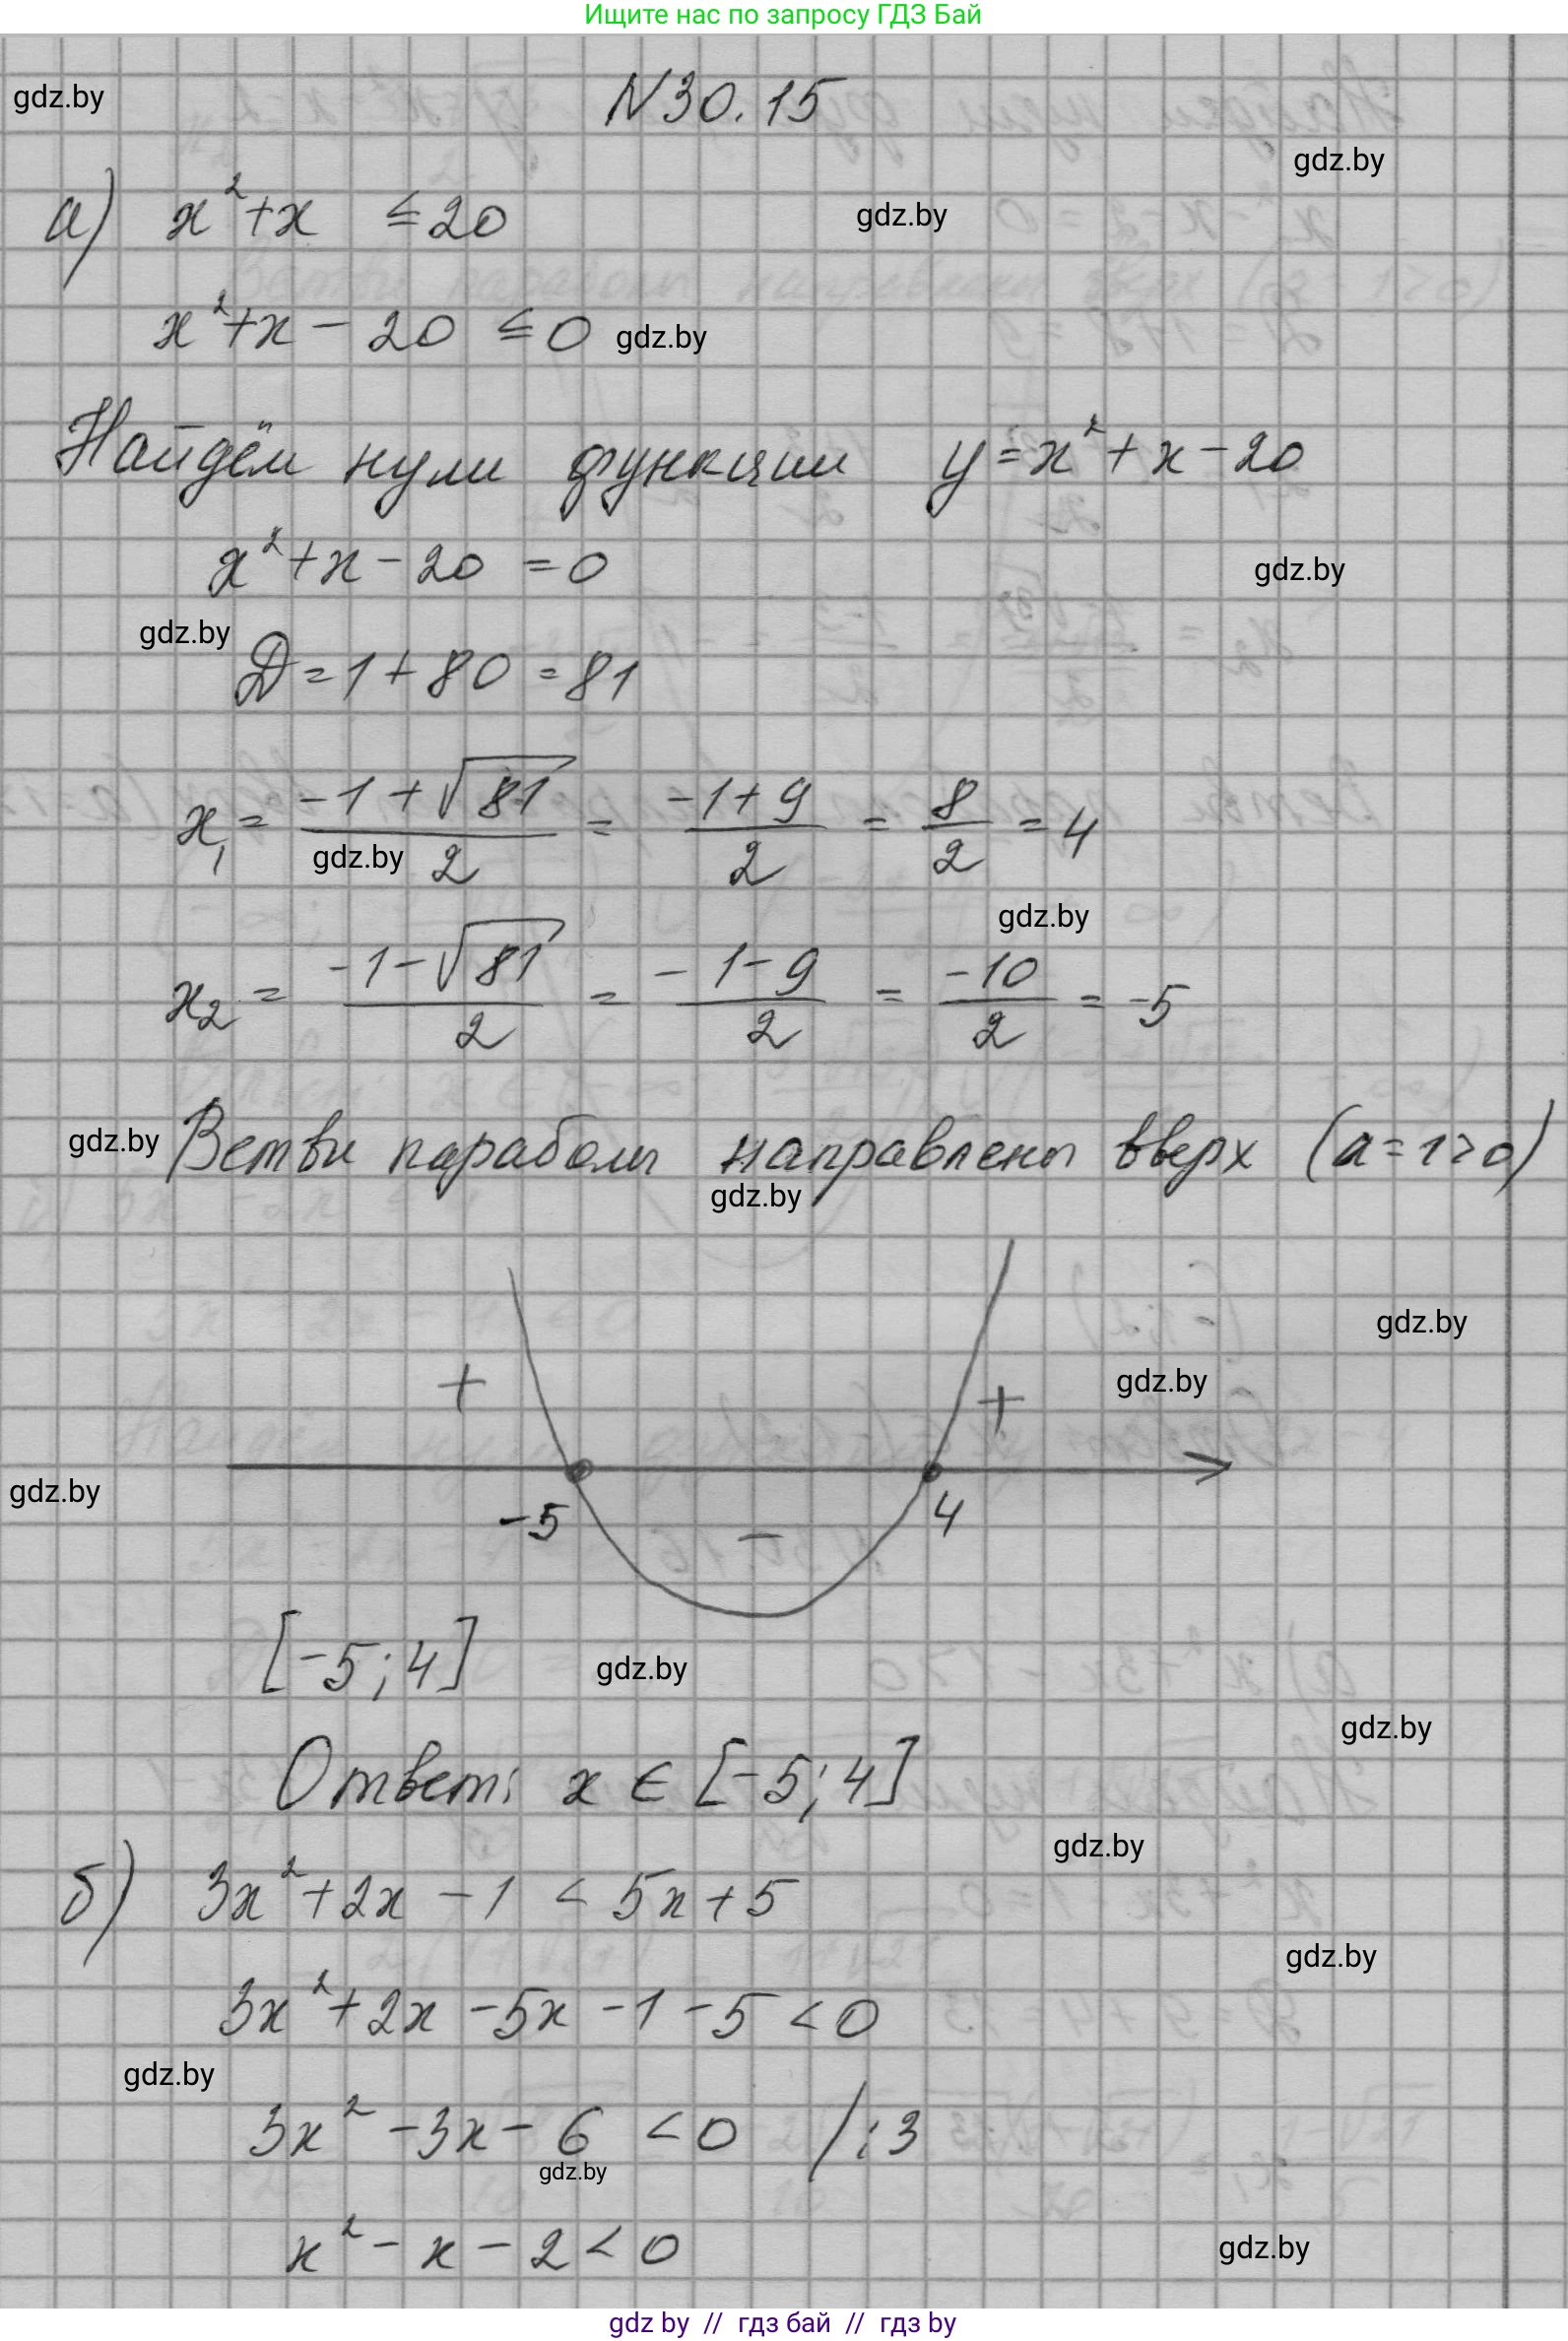 Ищите нас по запросу ГДЗ Бай
gdz.by
N30.15
gdz.by
а) x²+x ≤20
gdz.by
x²+x - 20 ≤0
gdz.by
Найдём нули функции y=x²+x-20
x²+x-20 =0
gdz.by
gdz.by
D=1+80=81
x₁= (-1+√81)/2 = (-1+9)/2 = 8/2 = 4
gdz.by
gdz.by
x₂ = (-1-√81)/2 = (-1-9)/2 = -10/2 = -5
gdz.by
Ветви параболы направлены вверх (a=1>0)
gdz.by
gdz.by
gdz.by
+ +
gdz.by
-5 - 4
[-5;4]
gdz.by
gdz.by
Ответ: x ∈ [-5;4]
gdz.by
б) 3x²+2x -1 < 5x+5
gdz.by
3x²+2x -5x -1 -5 <0
gdz.by
3x² -3x- 6 <0 /:3
gdz.by
x² - x - 2 < 0
gdz.by
gdz by // гдз бай // гдз by